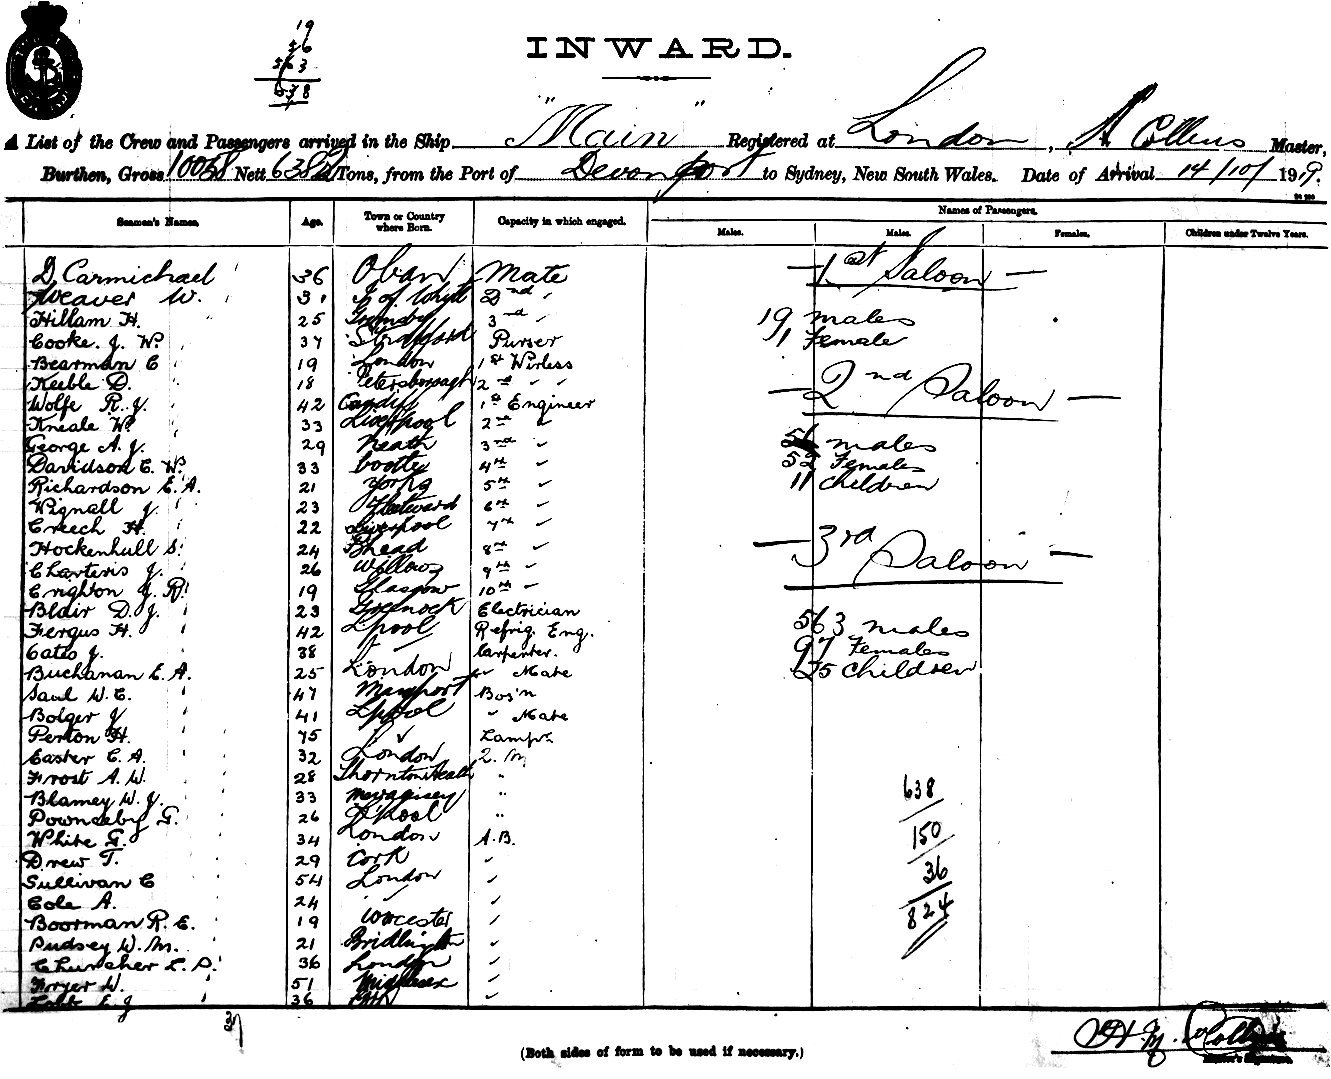 19
56
563
638
INWARD.
A List of the Crew and Passengers arrived in the Ship "Main" Registered at London, A Collins Master,
Burthen, Gross 10058 Nett 6382 Tons, from the Port of Devonport to Sydney, New South Wales. Date of Arrival 14/10/1919.
Seamen's Names. Age. Town or Country where Born. Capacity in which engaged. Names of Passengers.
Males. Males. Females. Children under Twelve Years.
D Carmichael 36 Oban Mate
Weaver W. 31 I of Whit 2nd "
Hillam H. 25 Grimsby 3rd "
Cooke J. W. 37 Stratford Purser
Bearman C 19 London 1st Wirless
Keeble D. 18 Petersborough 2nd " "
Wolfe R. J. 42 Cardiff 1st Engineer
Kneale W. 33 Liverpool 2nd "
George A. J. 29 Neath 3rd "
Davidson C. W. 33 Bootle 4th "
Richardson E. A. 21 Yorks 5th "
Wignall J. 23 Fleetwood 6th "
Creech H. 22 Liverpool 7th "
Hockenhull S. 24 B'head 8th "
Charteris J. 26 9th "
Crighton J. R. 19 Glasgow 10th "
Blair D. J. 23 Greenock Electrician
Fergus H. 42 L'pool Refrig. Eng.
Cates J. 38 " Carpenter.
Buchanan E. A. 25 London " Mate
Saul W. E. 47 Maryport Bos'n
Bolger J 41 L'pool " Mate
Perton H. 45 " Lampr.
Easter C. A. 32 London Q. M.
Frost A. W. 28 Thornton Heath "
Blamey W. J. 33 Mevagissey "
Pownceby G. 26 L'pool "
White G. 34 London A.B.
Drew T. 29 Cork "
Sullivan C 54 London "
Cole A. 24 " "
Boorman R. E. 19 Worcester "
Pudsey W. M. 21 Bridlington "
Churcher L. P. 36 London "
Fryer W. 51 Middlesex "
Cobb E. J 36 "
— 1st Saloon —
19 males
1 Female
— 2nd Saloon —
56 males
52 Females
11 Children
— 3rd Saloon —
563 males
97 Females
25 Children
638
150
36
824
37
(Both sides of form to be used if necessary.)
Master's Signature.